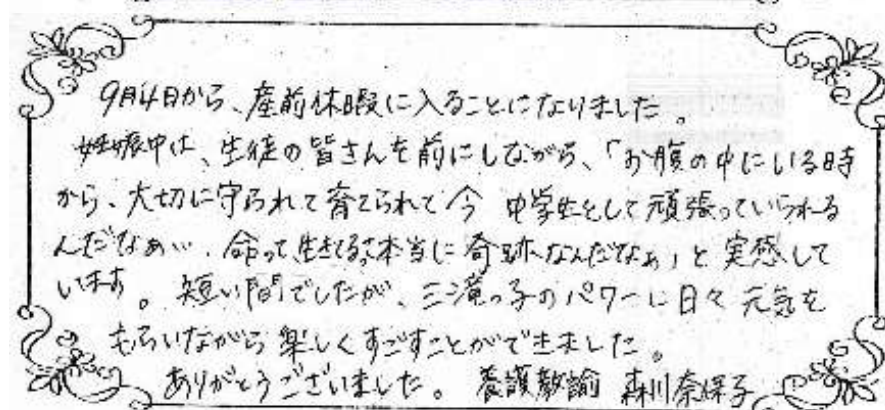 9月4日から、産前休暇に入ることになりました。
妊娠中は、生徒の皆さんを前にしながら、「お腹の中にいる時
から、大切に守られて育てられて今 中学生として頑張っていられる
んだなぁ…、命って、生きるって本当に奇跡なんだなぁ」と実感して
います。短い間でしたが、三滝っ子のパワーに日々元気を
もらいながら楽しくすごすことができました。
ありがとうございました。 養護教諭 森川奈保子